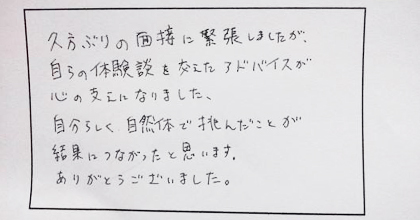 久方ぶりの面接に緊張しましたが、
自らの体験談を交えたアドバイスが
心の支えになりました、
自分らしく自然体で挑んだことが
結果につながったと思います。
ありがとうございました。